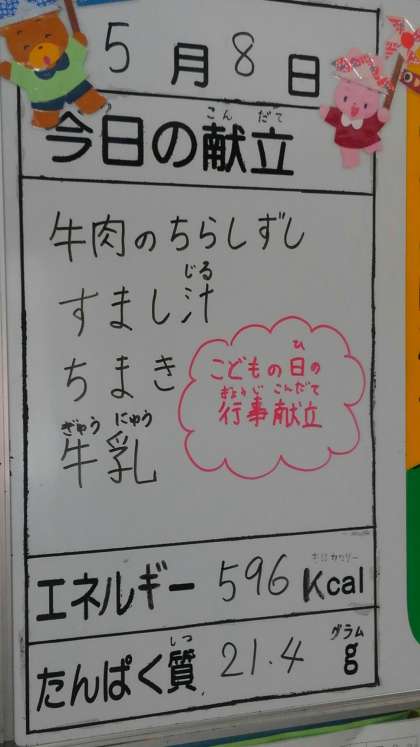 5月8日
こん だて
今日の献立
牛肉のちらしずし
じる
すまし汁
ちまき
ぎゅう にゅう
牛乳
ひ
こどもの日の
ぎょうじ こんだて
行事献立
キロカロリー
エネルギー 596 Kcal
しつ グラム
たんぱく質 21.4 g